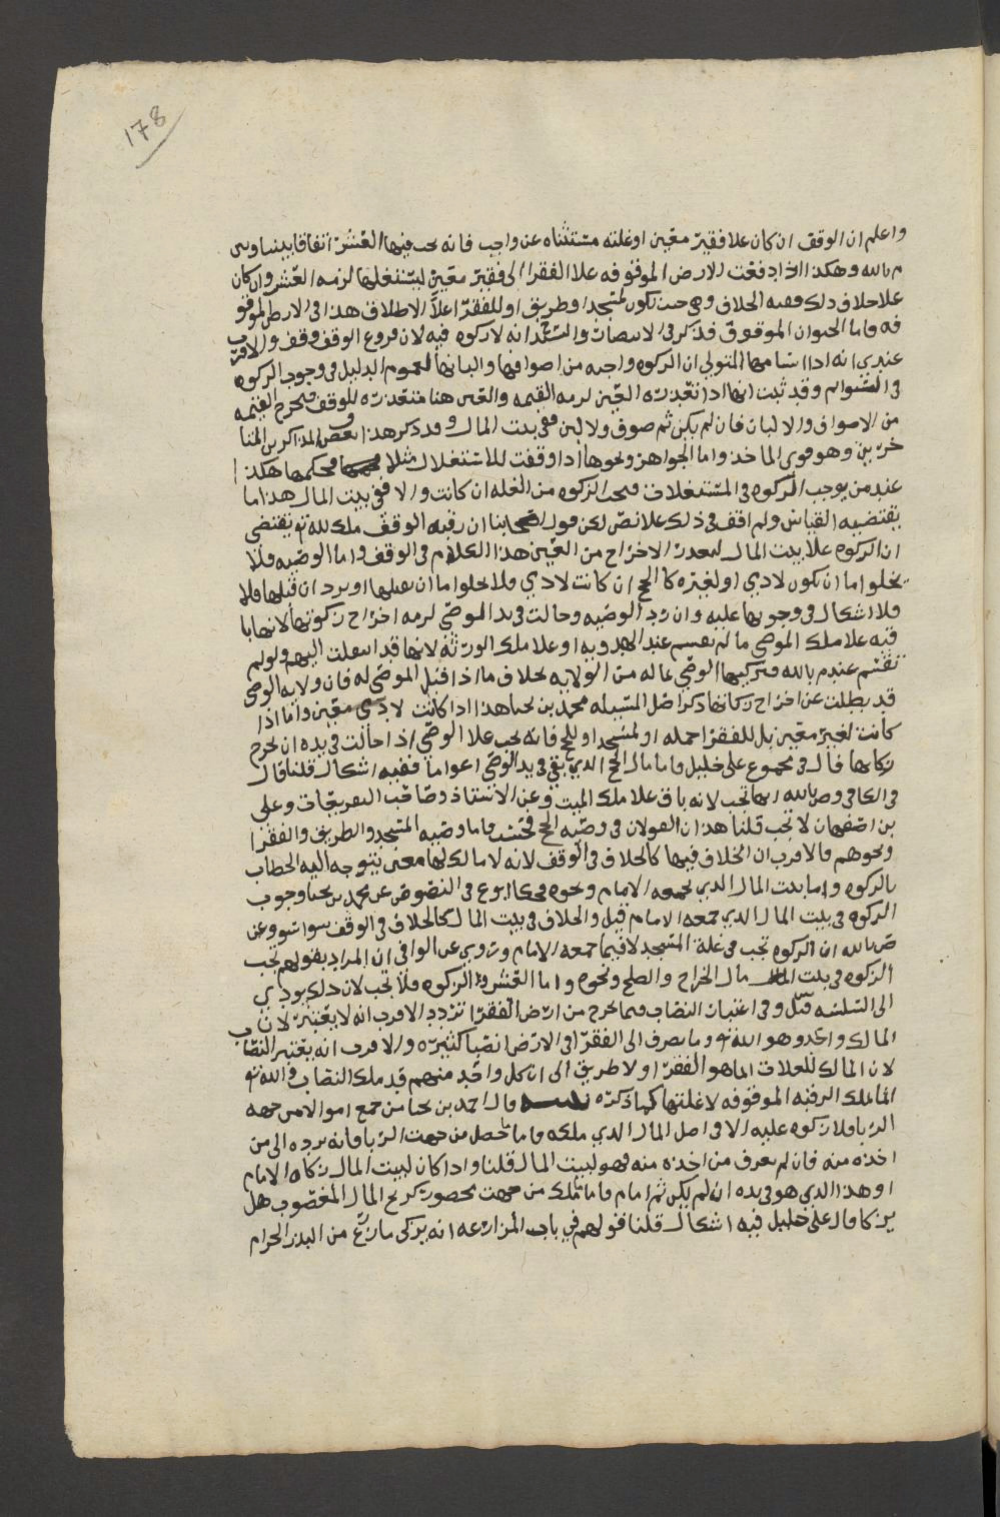 178
واعلم ان الوقف ان كان علا فقير معين او غلته مستثناه عن واجب فانه يجب فيها العشر اتفاقا بيننا وبين
م بالله وهكذا اذا دفعت الارض الموقوفه علا الفقرا الى فقير معين ليستغلها لزمه العشر وان كان
علا خلاف ذلك ففيه الخلاف وهي حيث تكون لمسجد او طريق او للفقرا علا الاطلاق هذا في الارض الموقو
فه واما الحيوان الموقوف فذكر في الانتصار والسيد انه لا زكوه فيه لان فروع الوقف وقف والاقرب
عندي انه اذا اسامها المتولي ان الزكوه واجبه من اصوافها والبانها لعموم الدليل في وجوب الزكوه
في السوائم وقد ثبت انها اذا تعذرت العين لزمه القيمه والعين هنا متعذره للوقف فتخرج القيمه
من الاصواف والالبان فان لم يكن ثم صوف ولا لبن ففي بيت المال وقد ذكر هذا بعض المذاكرين المتا
خرين وهو قوي الماخذ واما الجواهر ونحوها اذا وقفت للاستغلال مثلا فحكمها هكذا
عند من يوجب الزكوه في المستغلات فتجب الزكوه من الغله ان كانت والا ففي بيت المال هذا ما
يقتضيه القياس ولم اقف في ذلك علا نص لكن قول اصحابنا ان رقبه الوقف ملك لله تع يقتضي
ان الزكوه علا بيت المال لتعذر الاخراج من العين هذا الكلام في الوقف واما الوصيه فلا
يخلوا اما ان تكون لادمي او لغيره كالحج ان كانت لادمي فلا يخلوا اما ان يقبلها او يرد ان قبلها فلا
فلا اشكال في وجوبها عليه وان رد الوصيه وحالت في يد الموصي لزمه اخراج زكوتها لانها با
قيه علا ملك الموصي ما لم تقسم عند الهدويه او علا ملك الورثه لانها قد انتقلت اليهم ولو لم
تقسم عند م بالله فيزكيها الوصي بما له من الولايه بخلاف ما اذا قبل الموصى له فان ولايه الوصي
قد بطلت عن اخراج زكاتها ذكر اصل المسئله محمد بن يحيا هذا اذا كانت لادمي معين واما اذا
كانت لغير معين بل للفقرا جمله او لمسجد او للحج فانه يجب علا الوصي اذا حالت في يده ان يخرج
زكاتها قال في مجموع على خليل واما مال الحج الذي بقي في يد الوصي اعواما ففيه اشكال قلنا قال
في الكافي وص بالله انها تجب لانه باق علا ملك الميت وعن الاستاذ وصاحب التفريعات وعلى
بن اصفهان لا تجب قلنا هذان القولان في وصيه الحج فحسب واما وصيه المسجد والطريق والفقرا
ونحوهم فالاقرب ان الخلاف فيها كالخلاف في الوقف لانه لا مالك لها معين يتوجه اليه الخطاب
بالزكوه واما بيت المال الذي يجمعه الامام ونحوه فحكا ابو ع في النصوص عن محمد بن يحيا وجوب
الزكوه في بيت المال الذي جمعه الامام قيل والخلاف في بيت المال كالخلاف في الوقف سوا سوا وعن
ص بالله ان الزكوه تجب في غلة المسجد لا فيما جمعه الامام وروي عن الوافي ان المراد بقولهم تجب
الزكوه في بيت المال مال الخراج والصلح ونحوه واما العشر والزكوه فلا تجب لان ذلك يودي
الى التسلسل قيل وفي اعتبار النصاب فيما يخرج من ارض الفقرا تردد الاقرب انه لا يعتبر لان
المالك واحد وهو الله تع وما يصرف الى الفقرا في الارض انصبا كثيره والاقرب انه يعتبر النصاب
لان المالك للغلات انما هو الفقرا ولا طريق الى ان كل واحد منهم قد ملك النصاب والله تع
انما ملك الرقبه الموقوفه لا غلتها كما ذكره تنبيه قال احمد بن يحيا من جمع اموالا من جهه
الربا فلا زكوه عليه الا في اصل المال الذي ملكه واما ما تحصل من جهت الربا فانه يرده الى من
اخذه منه فان لم يعرف من اخذه منه فهو لبيت المال قلنا واذا كان لبيت المال زكاه الامام
او هذا الذي هو في يده ان لم يكن ثم امام واما ما تملك من جهت محضور كربح المال المغصوب هل
يزكا قال علي خليل فيه اشكال قلنا قولهم في باب المزارعه انه يزكى ما زرع من البذر الحرام